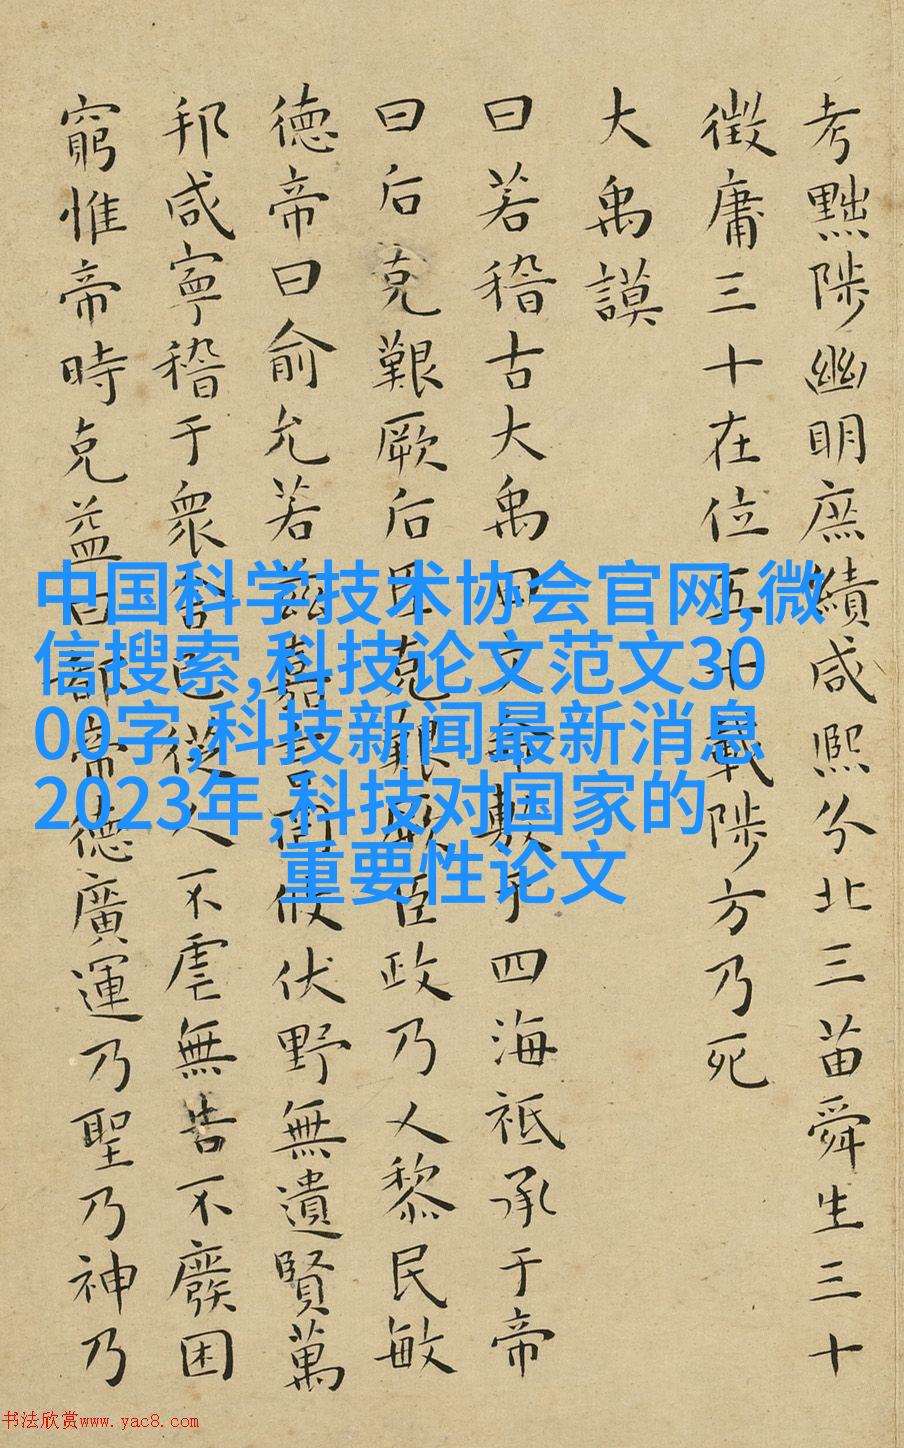 考黜陟幽明庶績咸熙分北三苗舜生三十
徵庸三十在位五十載陟方乃死
大禹謨
曰若稽古大禹曰文命敷于四海祗承于帝
曰后克艱厥后臣克艱厥臣政乃乂黎民敏
德帝曰俞允若茲嘉言罔攸伏野無遺賢萬
邦咸寧稽于衆舍己從人不虐無告不廢困
窮惟帝時克益曰都帝德廣運乃聖乃神乃
中国科学技术协会官网,微
信搜索,科技论文范文30
00字,科技新闻最新消息
2023年,科技对国家的
重要性论文
书法欣赏www.yac8.com